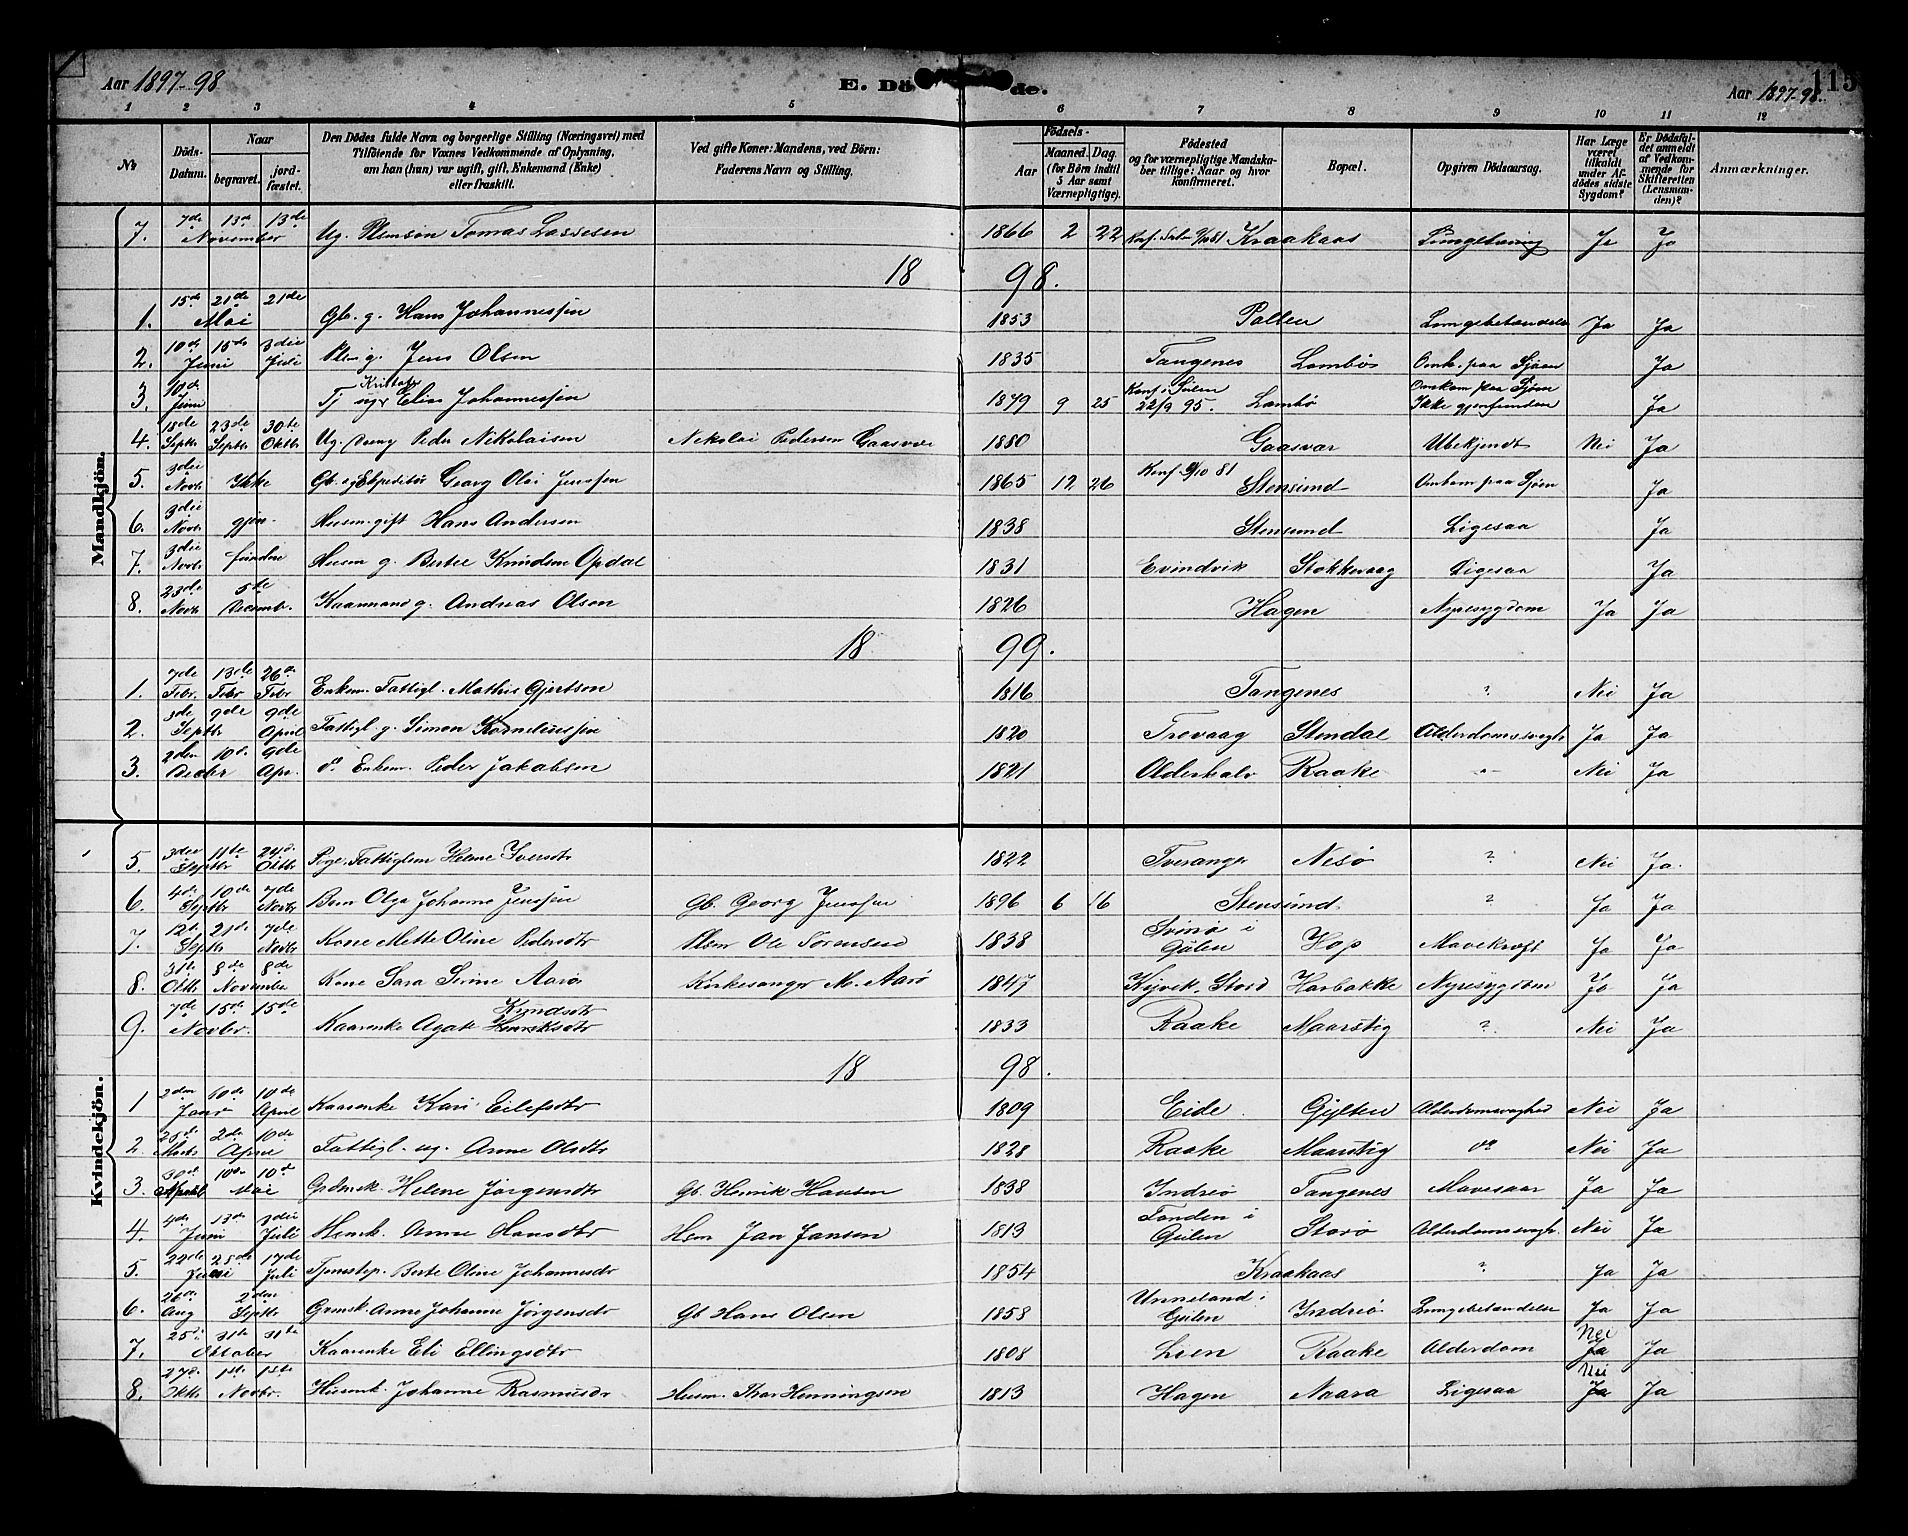 Aar 1897-98 E. Döde. Aar 1897-98. 115
1 2 3 4 5 6 7 8 9 10 11 12
No. Döds-Datum. Naar begravet. jordfæstet. Den Dödes fulde Navn og borgerlige Stilling (Næringsvei) med Tilföiende for Voxnes Vedkommende af Oplysning, om han (hun) var ugift, gift, Enkemand (Enke) eller fraskilt. Ved gifte Koner: Mandens, ved Börn: Faderens Navn og Stilling. Födsels- Aar Maaned. Dag. (for Börn indtil 5 Aar samt Værnepligtige). Födested og for værnepligtige Mandskaber tillige: Naar og hvor Konfirmeret. Bopæl. Opgiven Dödsaarsag. Har Læge været tilkaldt under Afdödes sidste Sygdom? Er Dödsfaldet anmeldt af Vedkommende for Skifteretten (Lensmanden)? Anmærkninger.
Mandkjön.
7. 7de 13de 13de November Ug. Tomas Lassesen 1866 2 22 Kraakaas Ja Ja
18 98.
1. 15de 21de 21de Mai Gb. g. Hans Johannessen 1853 Pollen Ja Ja
2. 10de 15de 3die Juni Juli g. Jens Olsen 1835 Tangenes Lambøs Omk. paa Sjøen Ja
3. 10de Juni Tj ug. Kristofer Elias Johannessen 1879 9 25 Konf. i Gulen 22/9 95. Lambø Omkom paa Sjøen Ikke gjenfunden Ja
4. 18de 23de 30te Septbr Septbr Oktbr Ug. Dreng Peder Nikolaisen Nikolai Pedersen Gaasvær 1880 Gaasvær Ubekjendt Nei Ja
5. 3die Novbr Ikke Gb. og Expeditør Georg Olai Jenssen 1865 12 26 Konf. 9/10 81 Stensund Omkom paa Sjøen Ja
6. 3die Novbr gjen- Husm. gift Hans Andersen 1838 Stensund Ligesaa Ja
7. 3die Novbr fundne Husm g. Bertel Knudsen Opdal 1831 Evindvik Stokkevaag Ligesaa Ja
8. 23de 5te Novbr Decembr. Kaarmand g. Andreas Olsen 1826 Hagen Nyresygdom Ja Ja
18 99.
1. 7de 13de 26de Febr. Febr Febr Enkem. Fattigl. Mathis Gjertsen 1816 Tangenes ? Nei Ja
2. 9de 9de Septbr April Fattigl. g. Simon Korneliussen 1820 Trovaag Stendal Alderdomssvagh. Ja Ja
3. 2den 10de 9de Decbr Apr. do Enkem. Peder Jakobsen 1821 Olderhalv Raake -"- Nei Ja
Kvindekjön.
5. 3die 11te 24de Septbr Oktbr Pige. Fattiglem Helene Iversdtr 1822 Tveranger Nesø ? Nei Ja.
6. 4de 10de 7de Septbr Novbr Barn Olga Johanne Jenssen Gb. Georg Jenssen 1896 6 16 Stensund. ? Ja Ja
7. 12te 21de 7de Septbr Novbr Kone Mette Oline Pedersdtr Ole Sørensen 1838 i Gulen Hop Mavekræft Ja Ja
8. 31te 8de 8de Oktbr November Kone Sara Serine Aarø Kirkesanger M. Aarø 1847 Stord Harbakke Nyresygdom Ja Ja
9. 7de 15de 15de Novbr. Kaarenke Agate Knudsdtr 1833 Raake Maarstig ? Nei Ja
18 98.
1 2den 10de 10de Janr April Kaarenke Kari Eilefsdtr 1809 Eide. Gylten Alderdomsvaghed Nei Ja
2 25de 2de 10de Marts April Fattigl. ug. Anne Olsdtr 1828 Raake Maarstig do Nei Ja
3. 30de 10de 10de April Mai Helene Jørgensdtr Gb. Henrik Hansen 1838 Indreø Tangenes Mavesaar Ja Ja
4. 4de 13de 3die Juni Juli Anne Hansdtr Hsm Jan Jansen 1813 i Gulen Storø Alderdomssvagh. Nei Ja
5. 22de 28de 17de Juni Juli Tjenestep. Berte Oline Johannesdr 1854 Kraakaas ? Ja Ja
6. 26de 2den Aug Septbr Anne Johanne Jørgensdr Gb Hans Olsen 1858 Unneland i Gulen Indreø Lungebetændelse Ja Ja
7. 25de 31te 31te Oktober Kaarenke Eli Ellingsdtr 1808 Lien Raake Alderdom Nei Ja Ja
8. 27de 1ste 1ste Oktbr Novbr. Johanne Rasmusdr Husm. Thor Henningsen 1813 Hagen Naara Ligesaa Nei Ja Ja